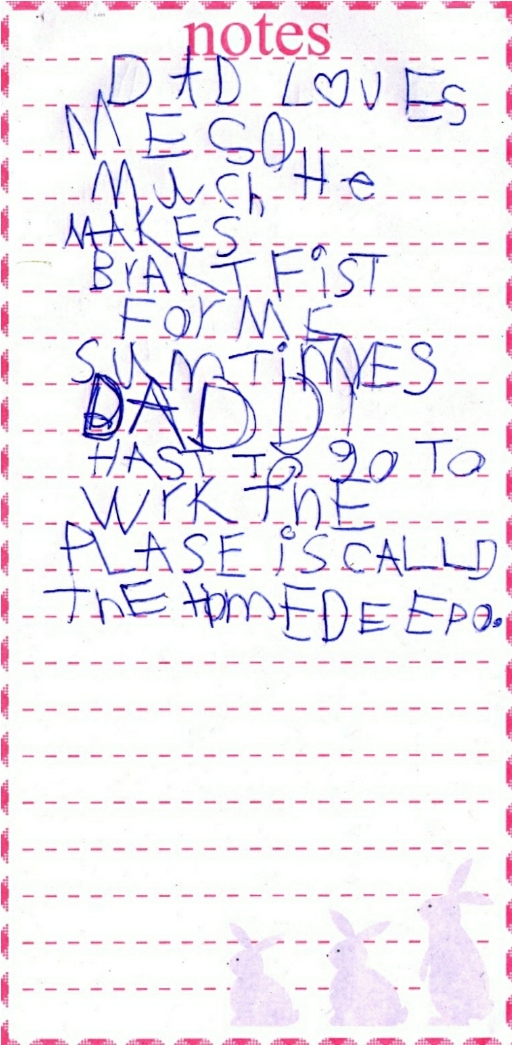 notes
DAD LOVES
ME SO
Much He
MAKES
BrAKTFiST
FOr ME
SUMTiMES
DADDY
HAST TO gO TO
WrK ThE
PLASE iS CALLD
ThE HomEDEEPO.